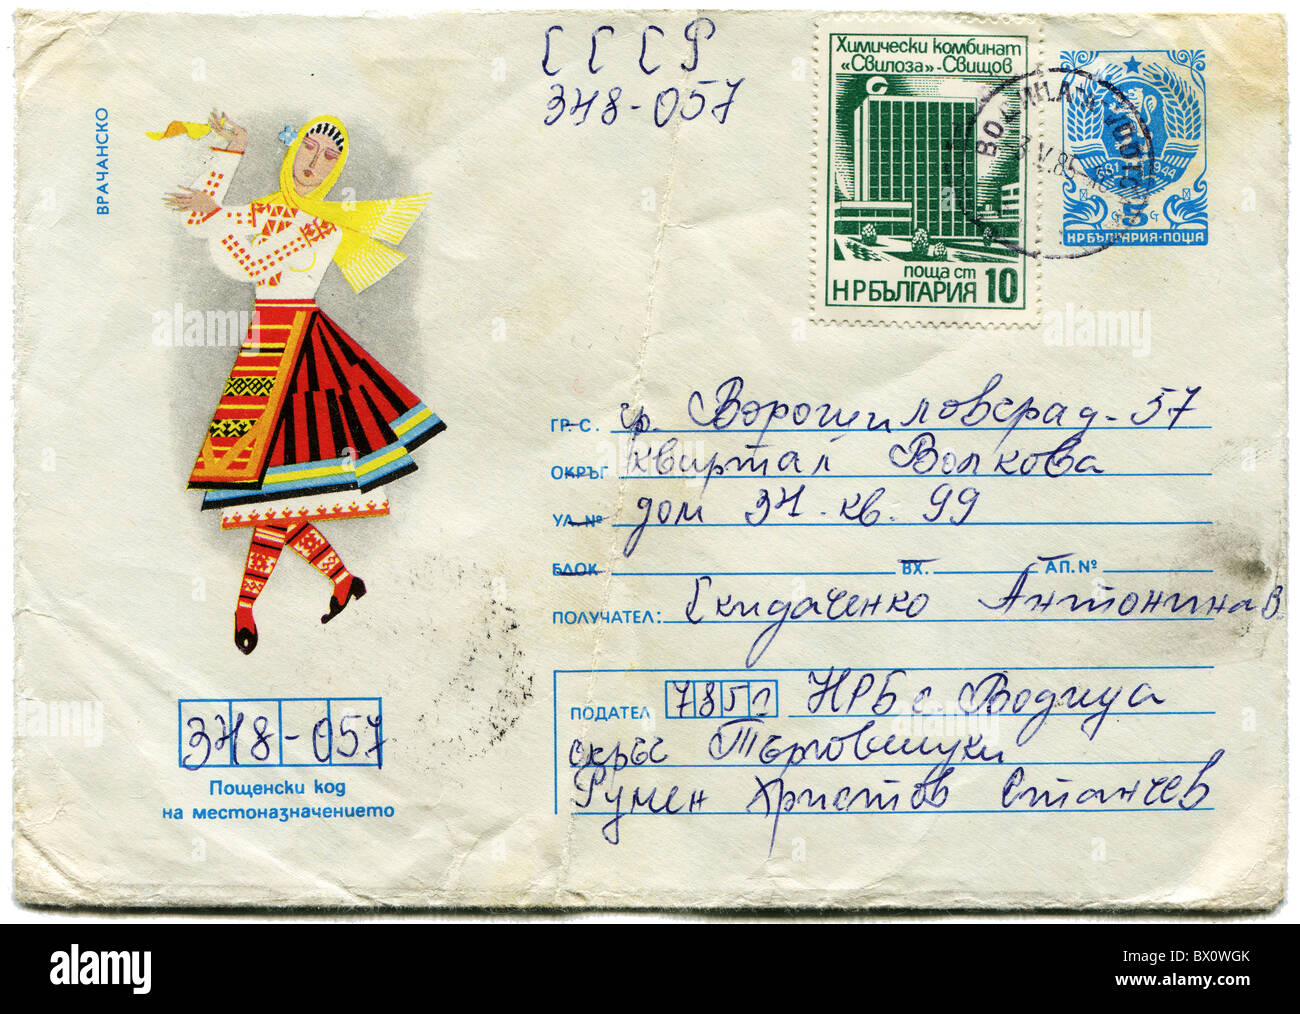 СССР
348-057
Химически комбинат
«Свилоза»-Свищов
поща ст
НРБЪЛГАРИЯ 10
3.V.85
681 1944
5
НРБЪЛГАРИЯ·ПОЩА
ВРАЧАНСКО
ГР.-С. гр. Ворошиловград-57
ОКРЪГ квартал Волкова
УЛ.№ дом 34. кв. 99
БЛОК ВХ. АП.№
ПОЛУЧАТЕЛ: Скидаченко Антонина В.
ПОДАТЕЛ 785 НРБ с. Водица
окръг Търговищки
Румен Христов Станчев
348-057
Пощенски код
на местоназначението
alamy
BX0WGK
www.alamy.com